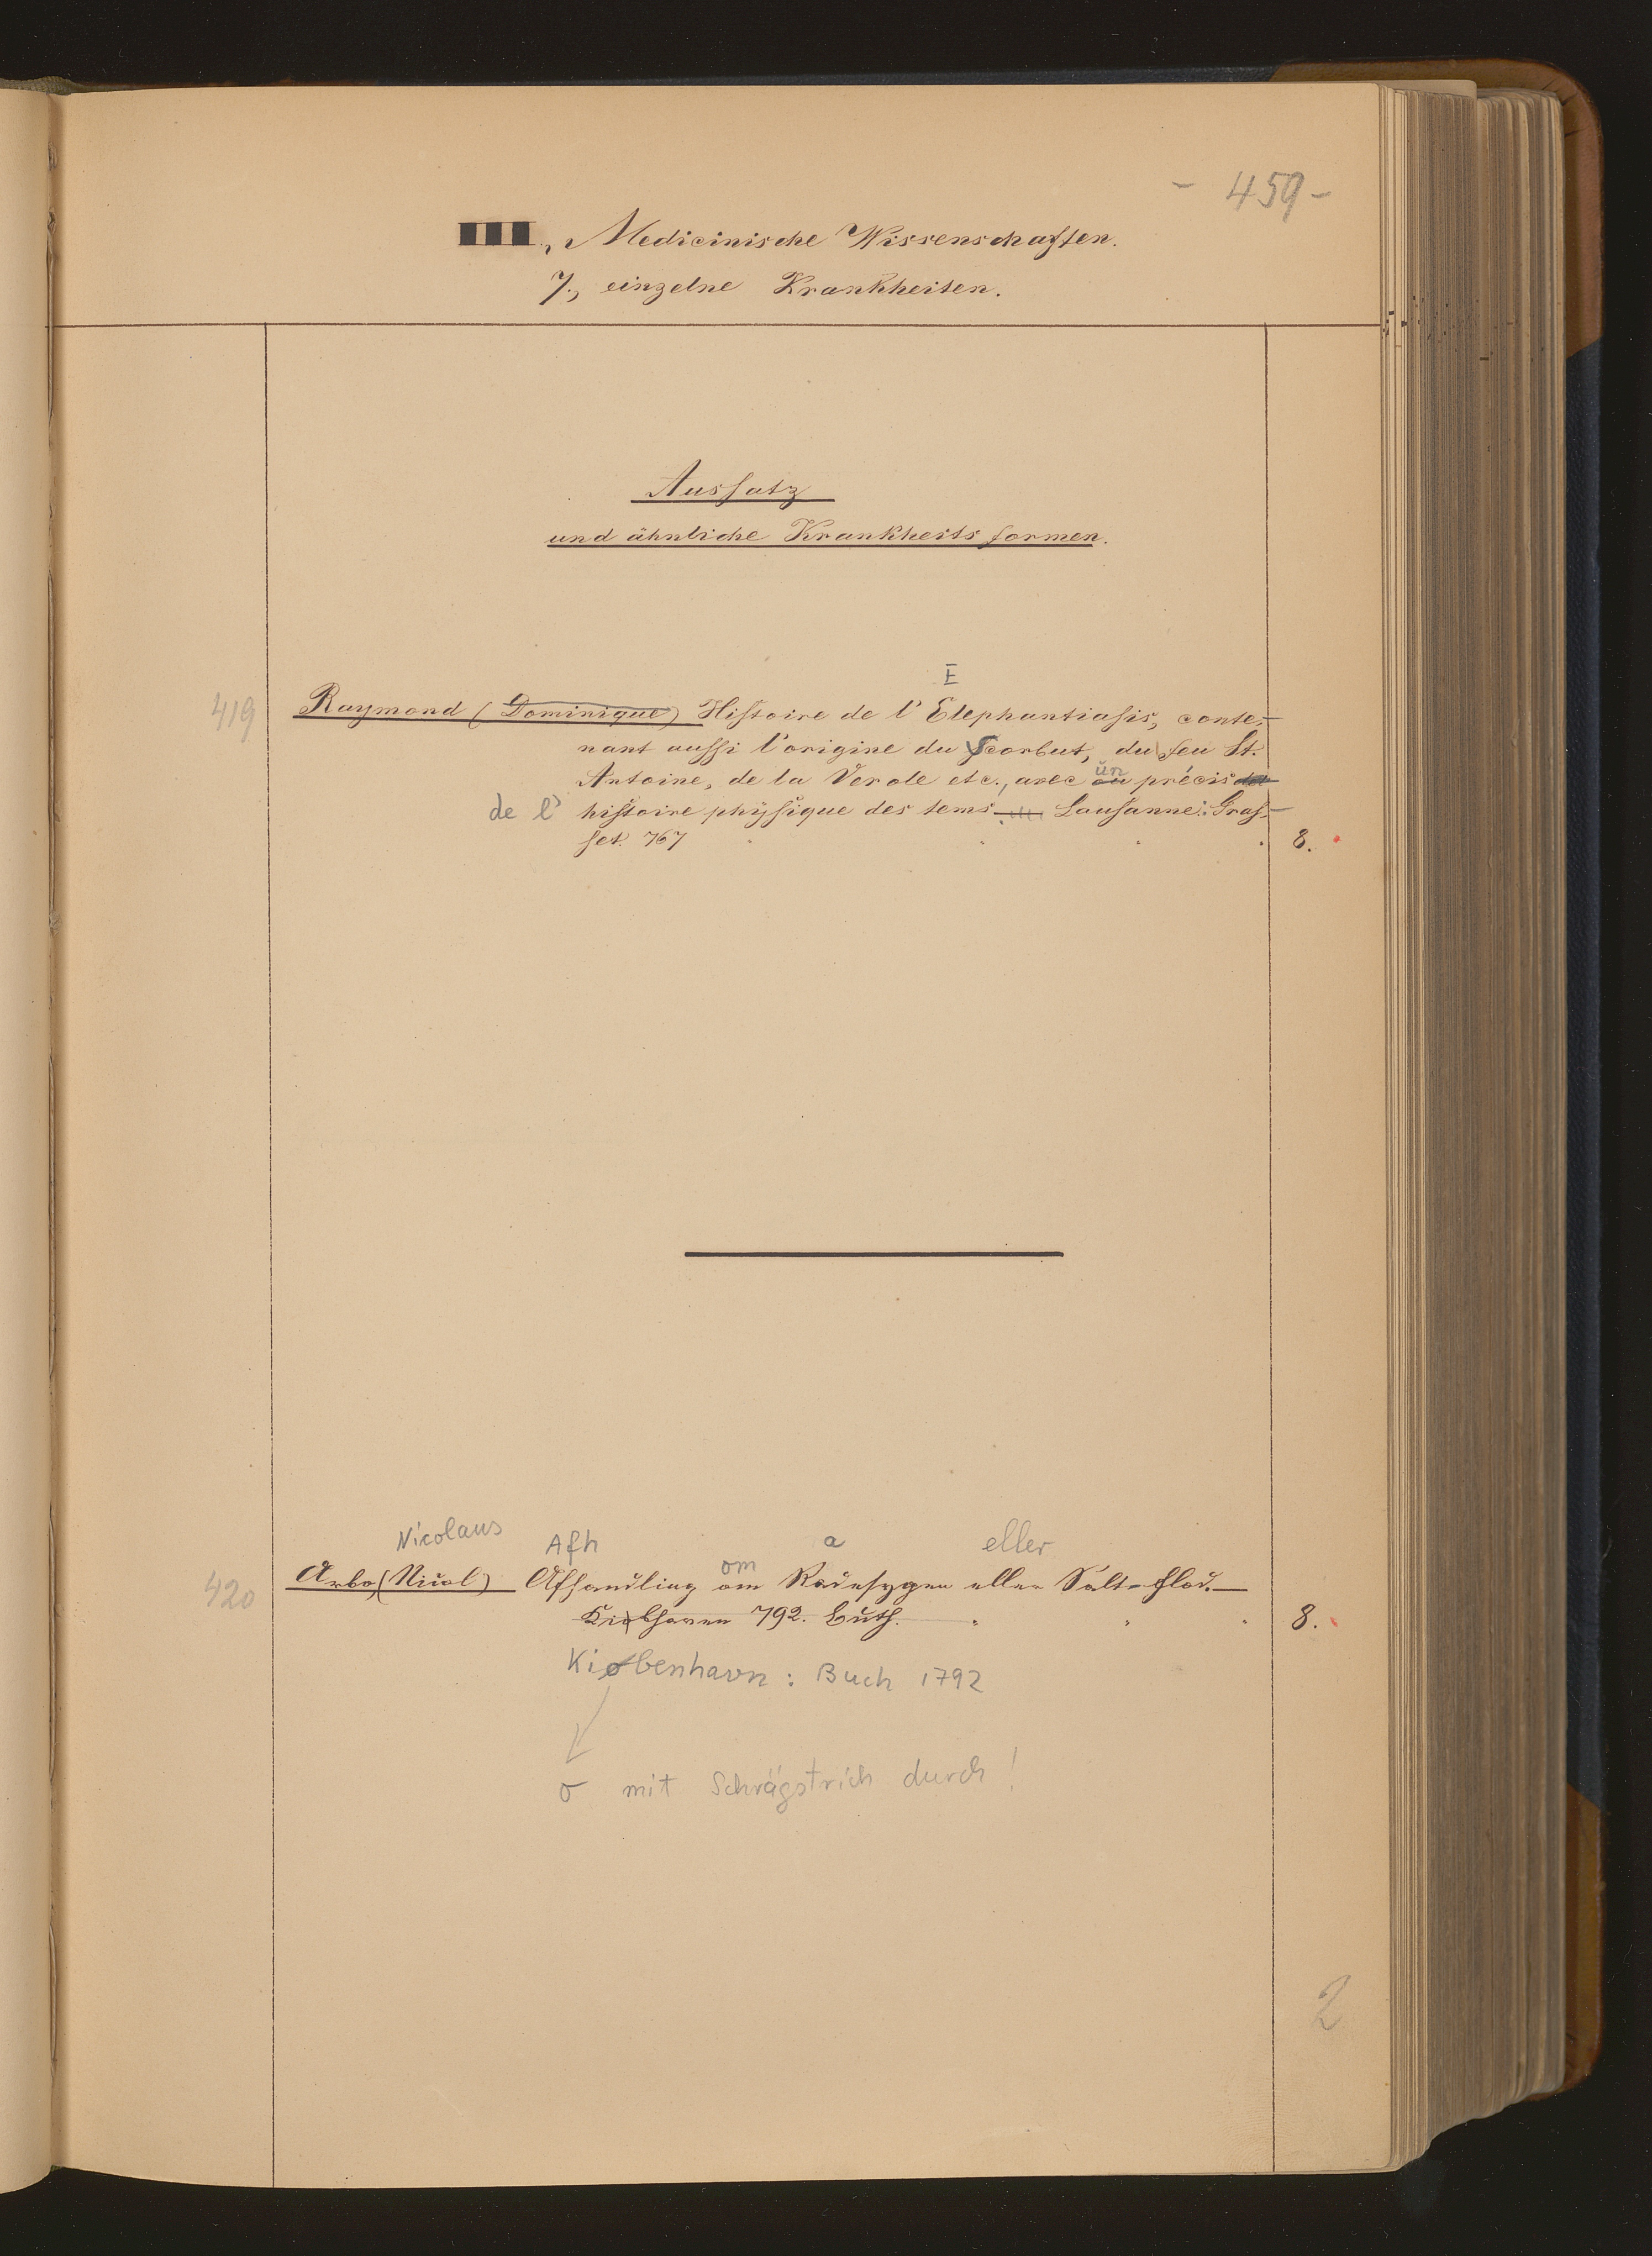 - 459 -
III, Medicinische Wissenschaften.
7., einzelne Krankheiten.
Aussatz
und ähnliche Krankheits formen.
E
419 Raymond (Dominique) Histoire de l'Elephantiasis, conte-
nant aussi l'origine du Scorbut, du feu St.
Antoine, de la Verole etc., avec un précis
de l' histoire physique des tems Lausanne: Gras-
set. 767 8.
Nicolaus Afh om a eller
420 Arbo, (Nicol) Afhandling om Radesygen eller Salt-Flod.
Kiobhaven 792. Buch. 8.
Kiøbenhavn: Buch 1792
o mit Schrägstrich durch!
2